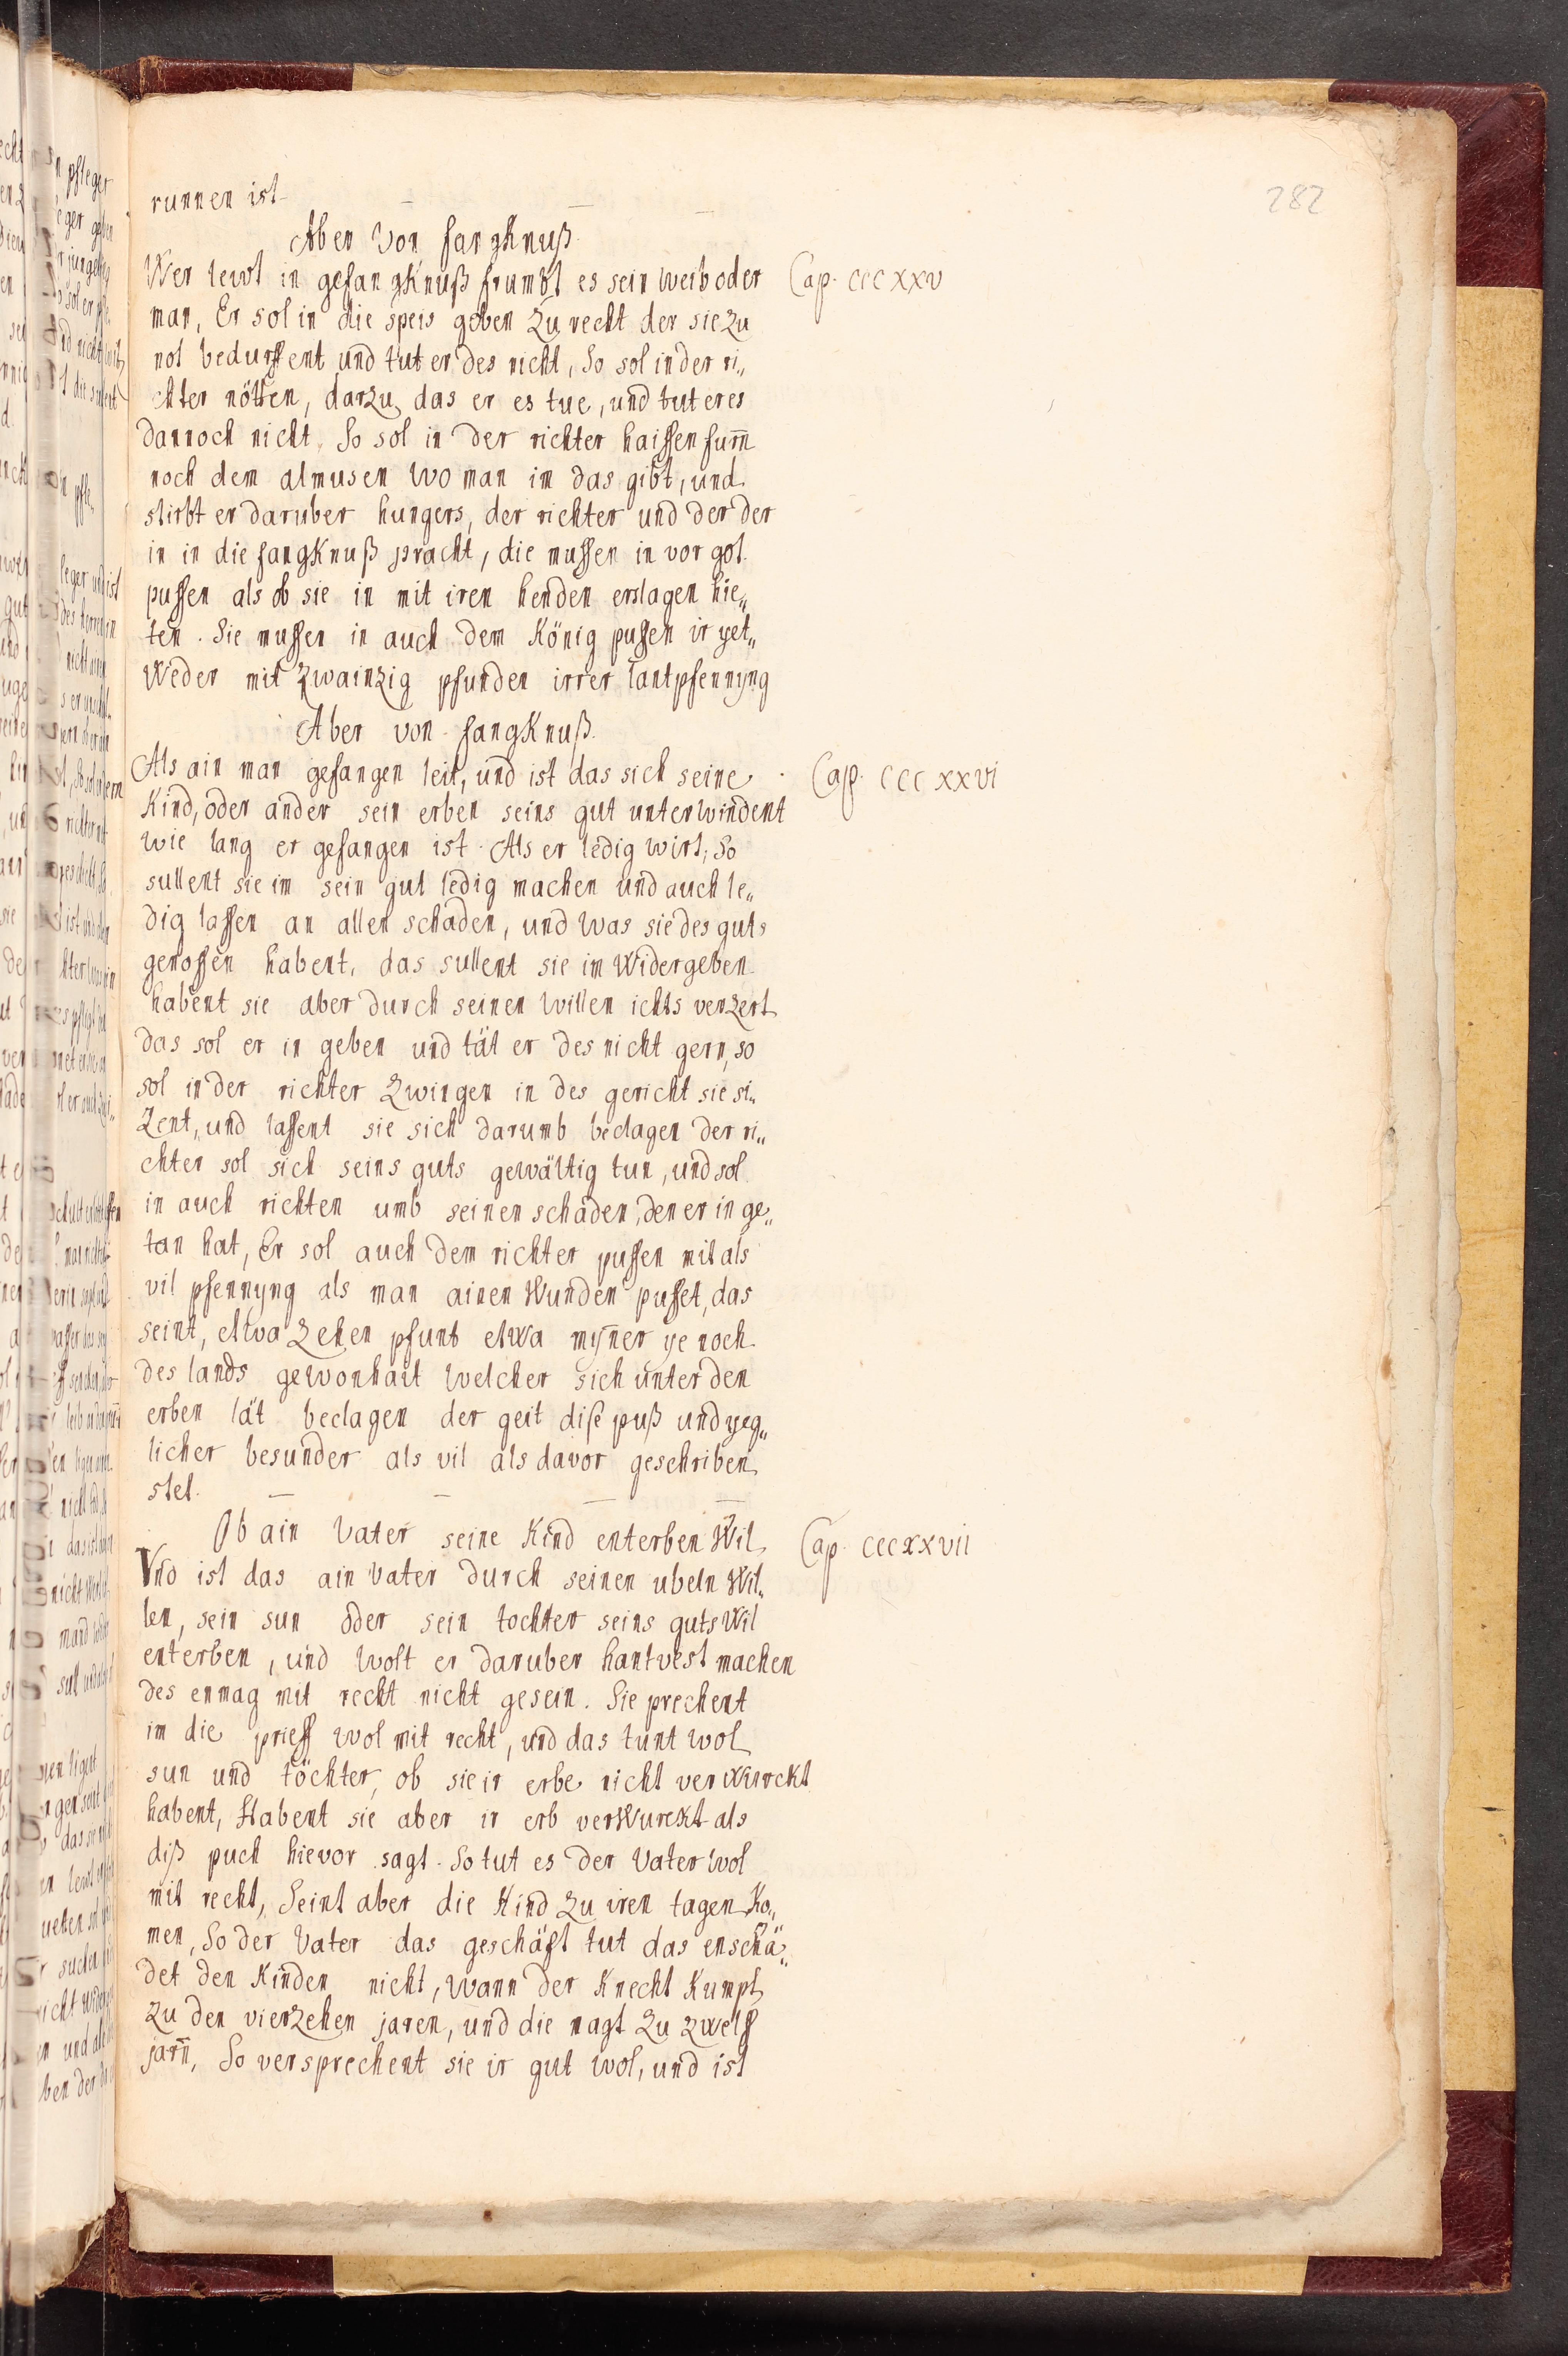 282
runnen ist
Aber von fangKnuß
Wer lewt in gefangKnuß frumbt es sein weib oder
Cap. CCCXXV
man, Er sol in die speis geben Zu recht der sie Zu
not bedurffent und tut er des nicht, So sol in der ri„
chter nötten, darzu das er es tue, und tut er es
dannoch nicht. So sol in der richter haissen furn
noch dem almusen wo man im das gibt, und
stirbt er daruber hungers, der richter und der der
in in die fangKnuß pracht, die mussen in vor got
pussen als ob sie in mit iren henden erslagen hie„
ten. Sie mussen in auch dem König pussen ir yet„
Weder mit Zwainzig pfunden irrer lantpfennyng
Aber von fangKnuß.
Als ain man gefangen leit, und ist das sich seine
Cap. CCCXXVI
Kind, oder ander sein erben seins gut unterwindent
wie lang er gefangen ist. Als er ledig wirt, So
sullent sie im sein gut ledig machen und auch le„
dig lassen an allen schaden, und was sie des guts
genossen habent, das sullent sie im Widergeben
habent sie aber durch seinen Willen ichts verzert
das sol er in geben und tät er des nicht gern, so
sol in der richter Zwingen in des gericht sie si„
Zent, und lassent sie sich darumb beclagen der ri„
chter sol sich seins guts gewältig tun, und sol
in auch richten umb seinen schaden, den er in ge„
tan hat, Er sol auch dem richter pussen mit als
vil pfennyng als man ainen Wunden pusset, das
seint, etwa Zehen pfunt etwa myner ye noch
des lands gewonhait welcher sich unter den
erben lät beclagen der geit dise puß und yeg„
licher besunder als vil als davor geschriben
stet.
Ob ain Vater seine Kind enterben Wil
Cap. CCCXXVII
Und ist das ain Vater durch seinen ubeln Wil„
len, sein sun oder sein tochter seins guts Wil
enterben, und wolt er daruber hantvest machen
des enmag mit recht nicht gesein. Sie prechent
im die prieff wol mit recht, und das tunt wol
sun und töchter, ob sie ir erbe nicht verwurckt
habent, Habent sie aber ir erb verwurckt als
diß puch hievor sagt. So tut es der Vater wol
mit recht, Seint aber die Kind Zu iren tagen Ko„
men, So der Vater das geschäft tut das enschä„
det den Kinden nicht, wann der Knecht Kumpt
Zu den vierzehen jaren, und die magt Zu zwelf
jarn, So versprechent sie ir gut wol, und ist